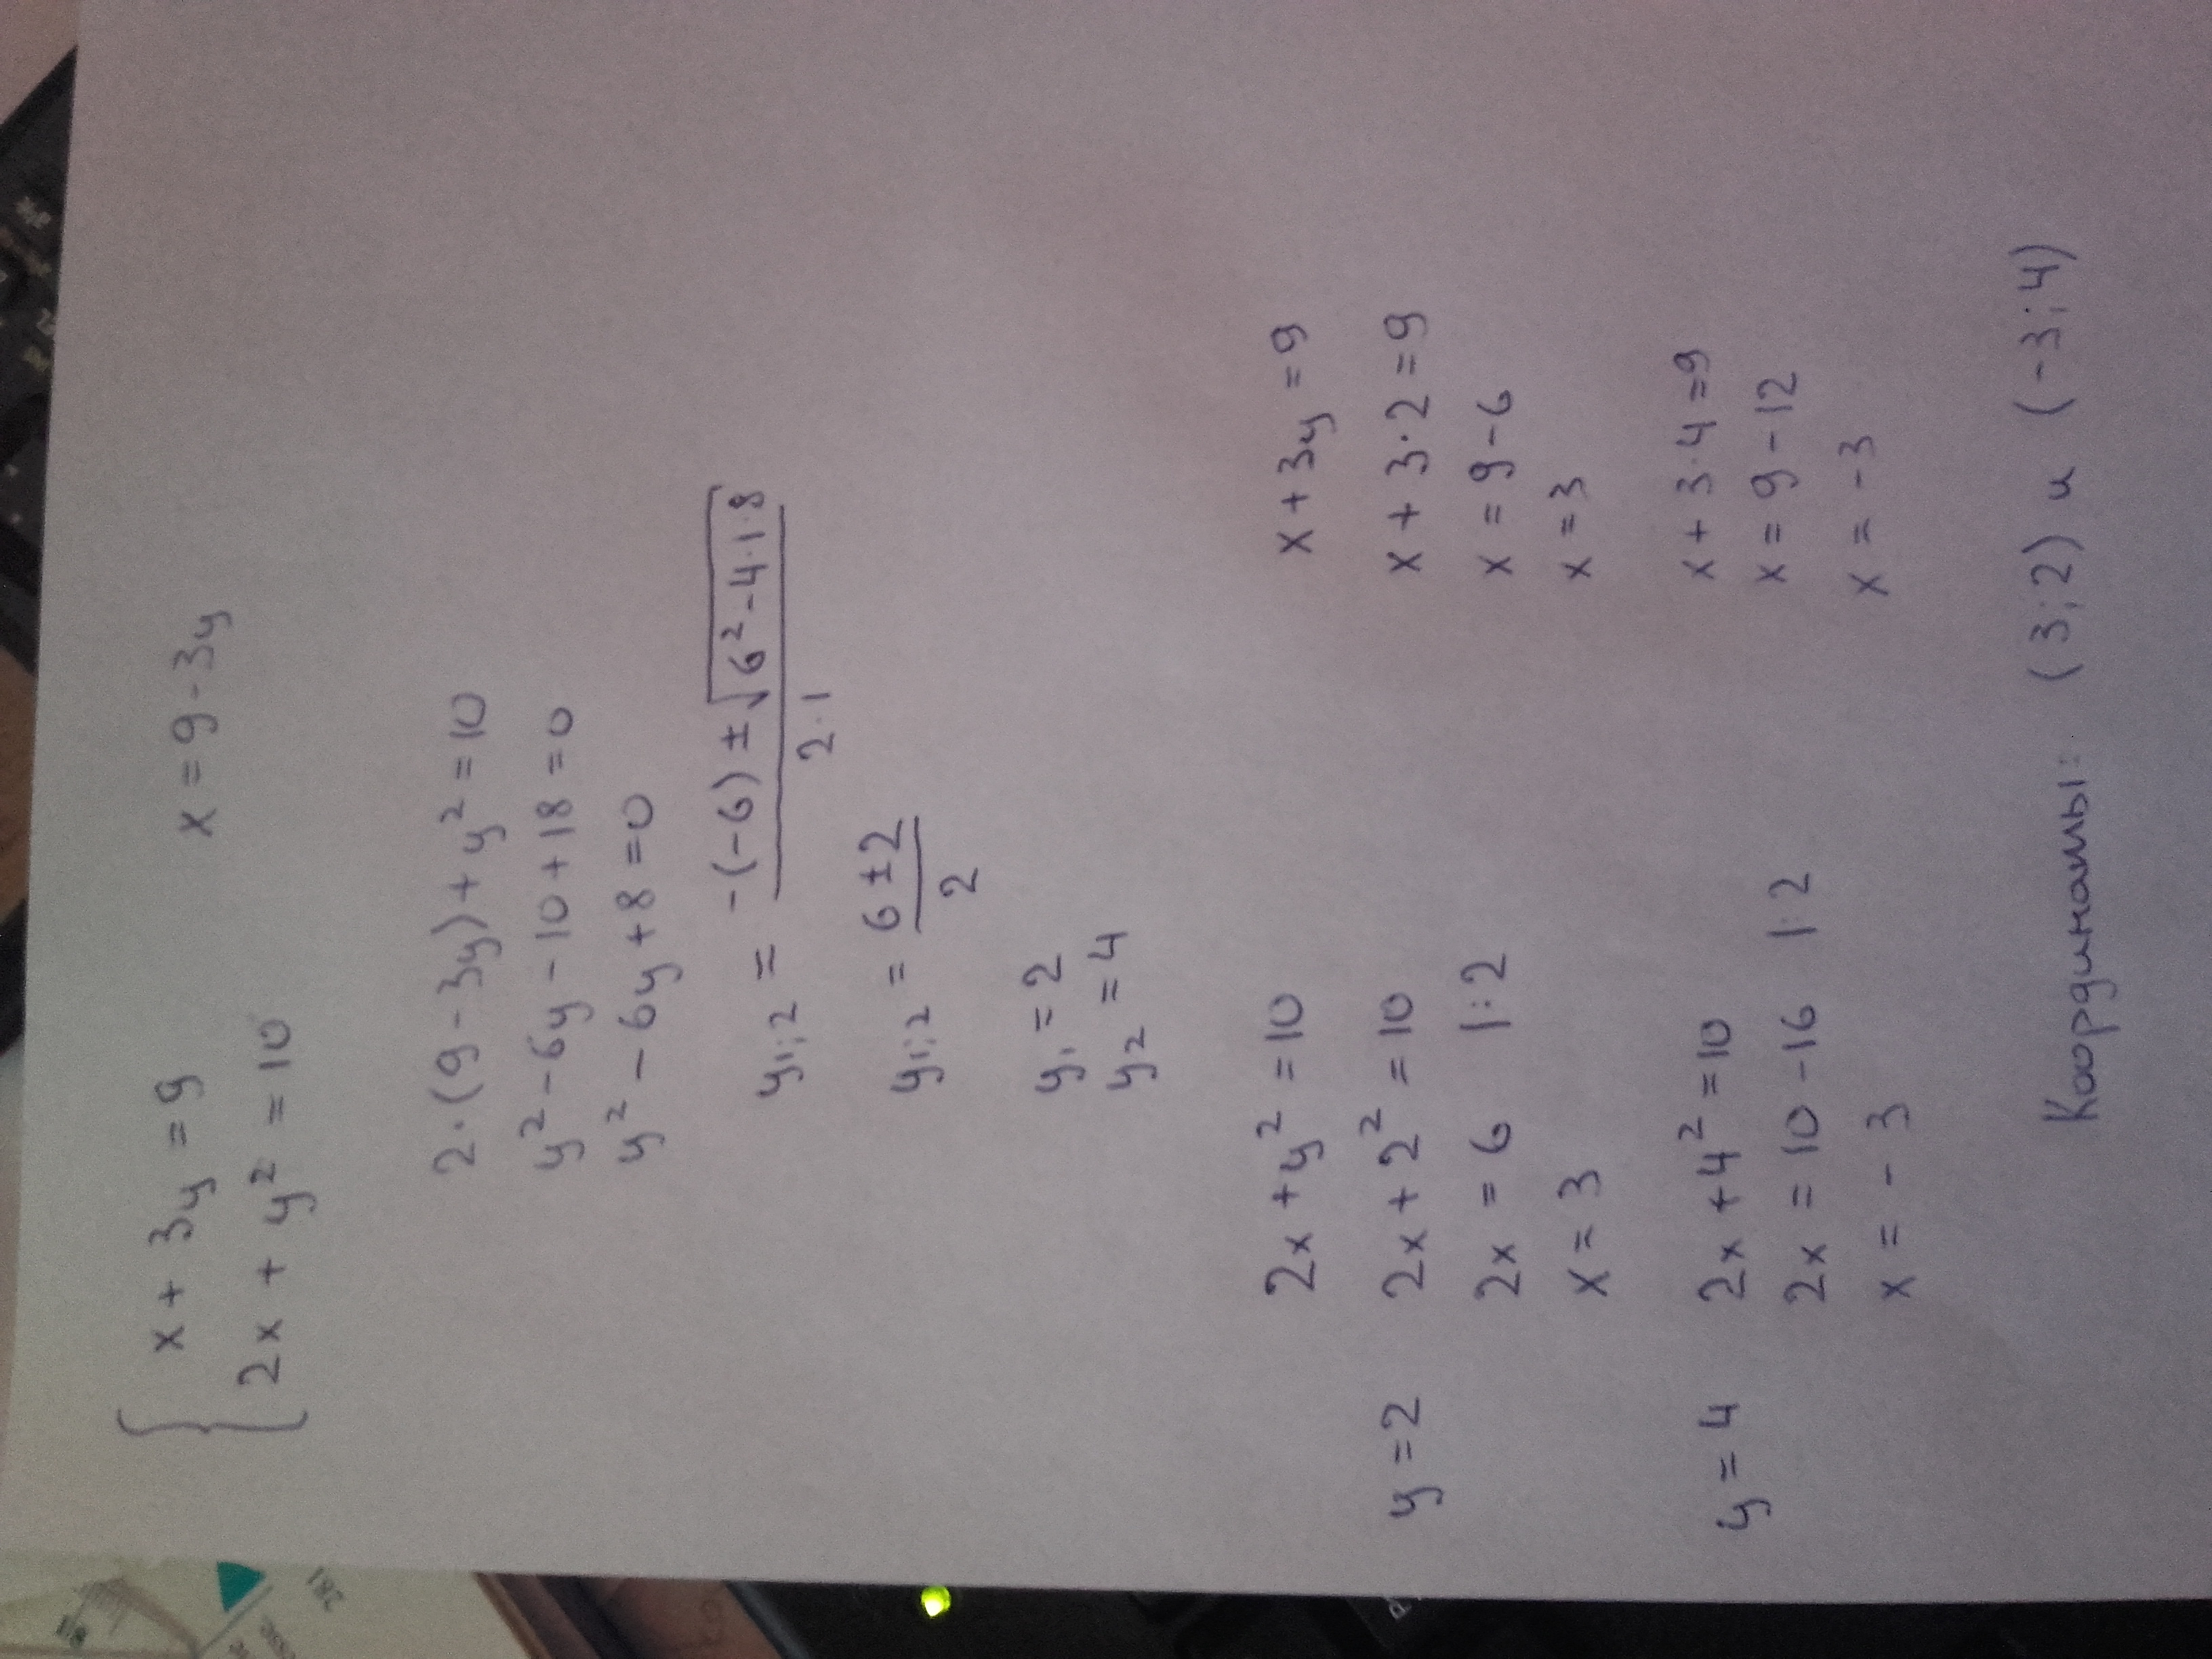 x + 3y = 9 x = 9 - 3y
2x + y² = 10
2·(9 - 3y) + y² = 10
y² - 6y - 10 + 18 = 0
y² - 6y + 8 = 0
y₁;₂ = (-(-6) ± √(6² - 4·1·8)) / (2·1)
y₁;₂ = (6 ± 2) / 2
y₁ = 2
y₂ = 4
2x + y² = 10 x + 3y = 9
y = 2 2x + 2² = 10 x + 3·2 = 9
2x = 6 |:2 x = 9 - 6
x = 3 x = 3
y = 4 2x + 4² = 10 x + 3·4 = 9
2x = 10 - 16 |:2 x = 9 - 12
x = -3 x = -3
Координаты: (3;2) и (-3;4)
281